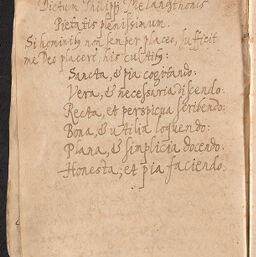 Dictum Philippi Melanthonis
Pietatis plenissimum.
Si hominibus non semper placeo, sufficit
me Deo placere, his
Sancta, & pia cogitando:
Vera, & necessaria discendo:
Recta, et perspicua scribendo:
Bona, & utilia loquendo:
Plana, & simplicia docendo:
Honesta, et pia faciendo.